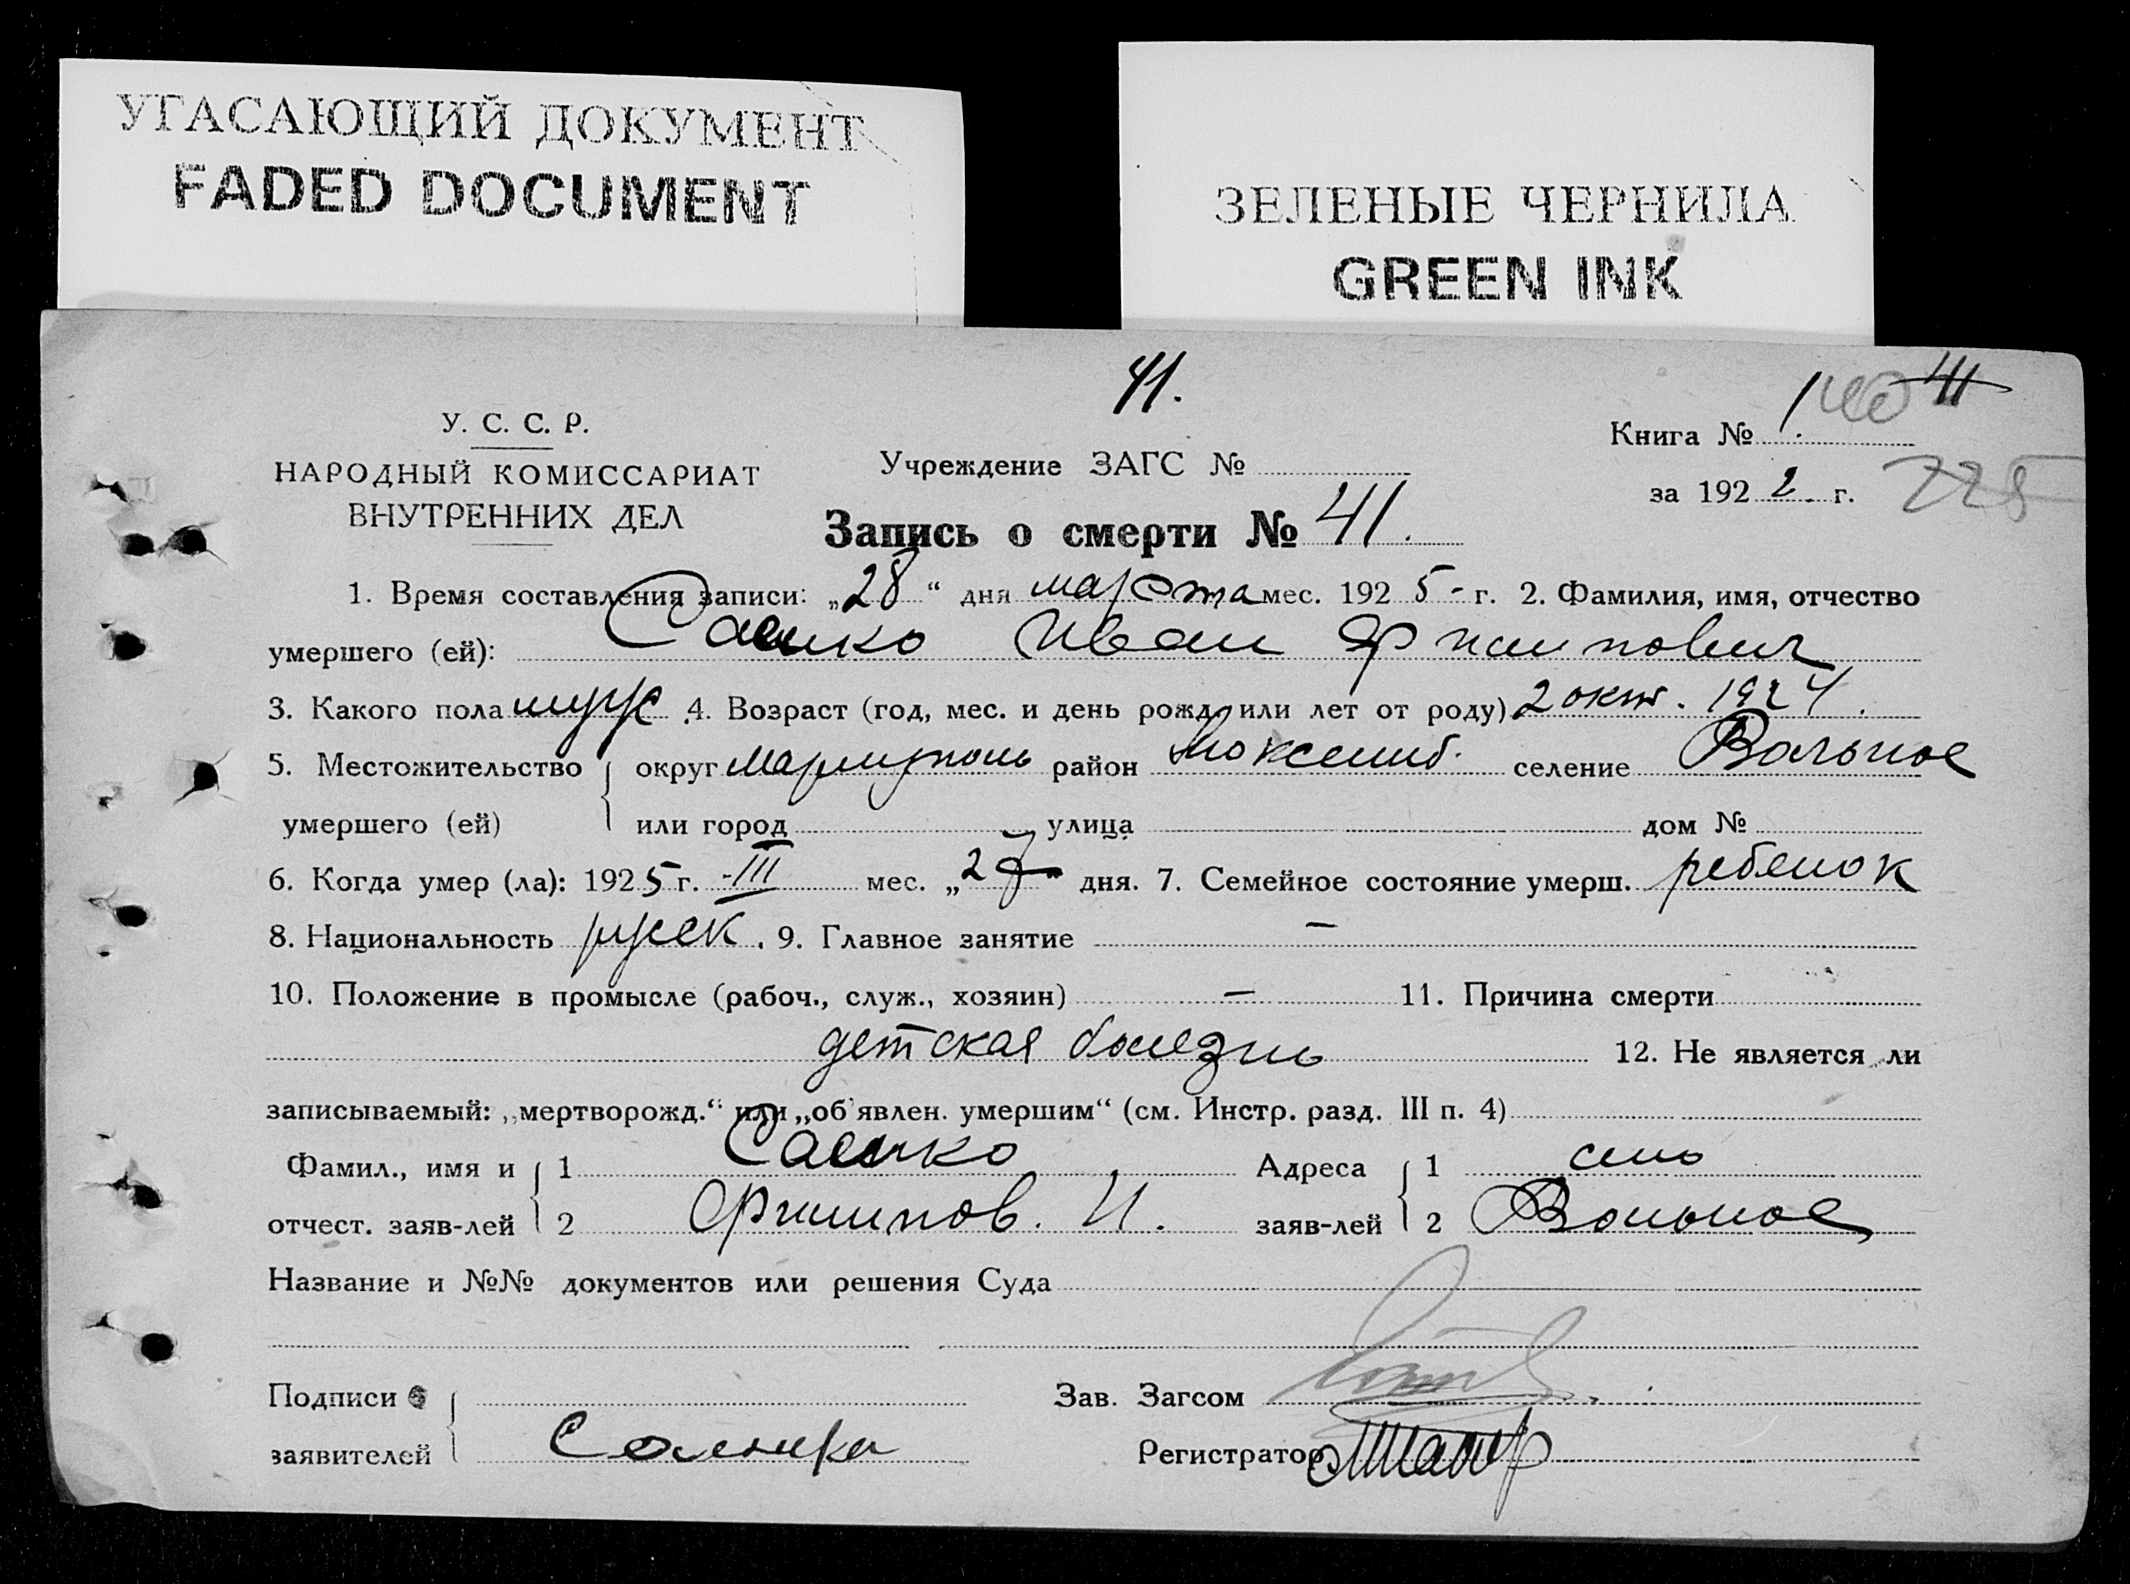 УГАСАЮЩИЙ ДОКУМЕНТ
FADED DOCUMENT
ЗЕЛЕНЫЕ ЧЕРНИЛА
GREEN INK
41.
140 41
У. С. С. Р.
НАРОДНЫЙ КОМИССАРИАТ
ВНУТРЕННИХ ДЕЛ
Учреждение ЗАГС №
Книга № 1.
за 1922. г. 228
Запись о смерти № 41.
1. Время составления записи: „28“ дня марта мес. 1925 - г. 2. Фамилия, имя, отчество
умершего (ей): Сашко Иван Филипович
3. Какого пола муж. 4. Возраст (год, мес. и день рожд. или лет от роду) 2 окт. 1924.
5. Местожительство округ Мариуполь район селение Вольное
умершего (ей) или город улица дом №
6. Когда умер (ла): 1925 г. -III мес. „27“ дня. 7. Семейное состояние умерш. ребенок
8. Национальность русск. 9. Главное занятие —
10. Положение в промысле (рабоч., служ., хозяин) — 11. Причина смерти
детская болезнь 12. Не является ли
записываемый: „мертворожд.“ или „об'явлен. умершим“ (см. Инстр. разд. III п. 4)
Фамил., имя и 1 Сашко Адреса 1 село
отчест. заяв-лей 2 Филипов. И. заяв-лей 2 Вольное
Название и №№ документов или решения Суда
Подписи Зав. Загсом
заявителей Регистратор